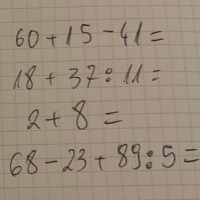 60+15-41=
18+37:11=
2+8=
68-23+89:5=